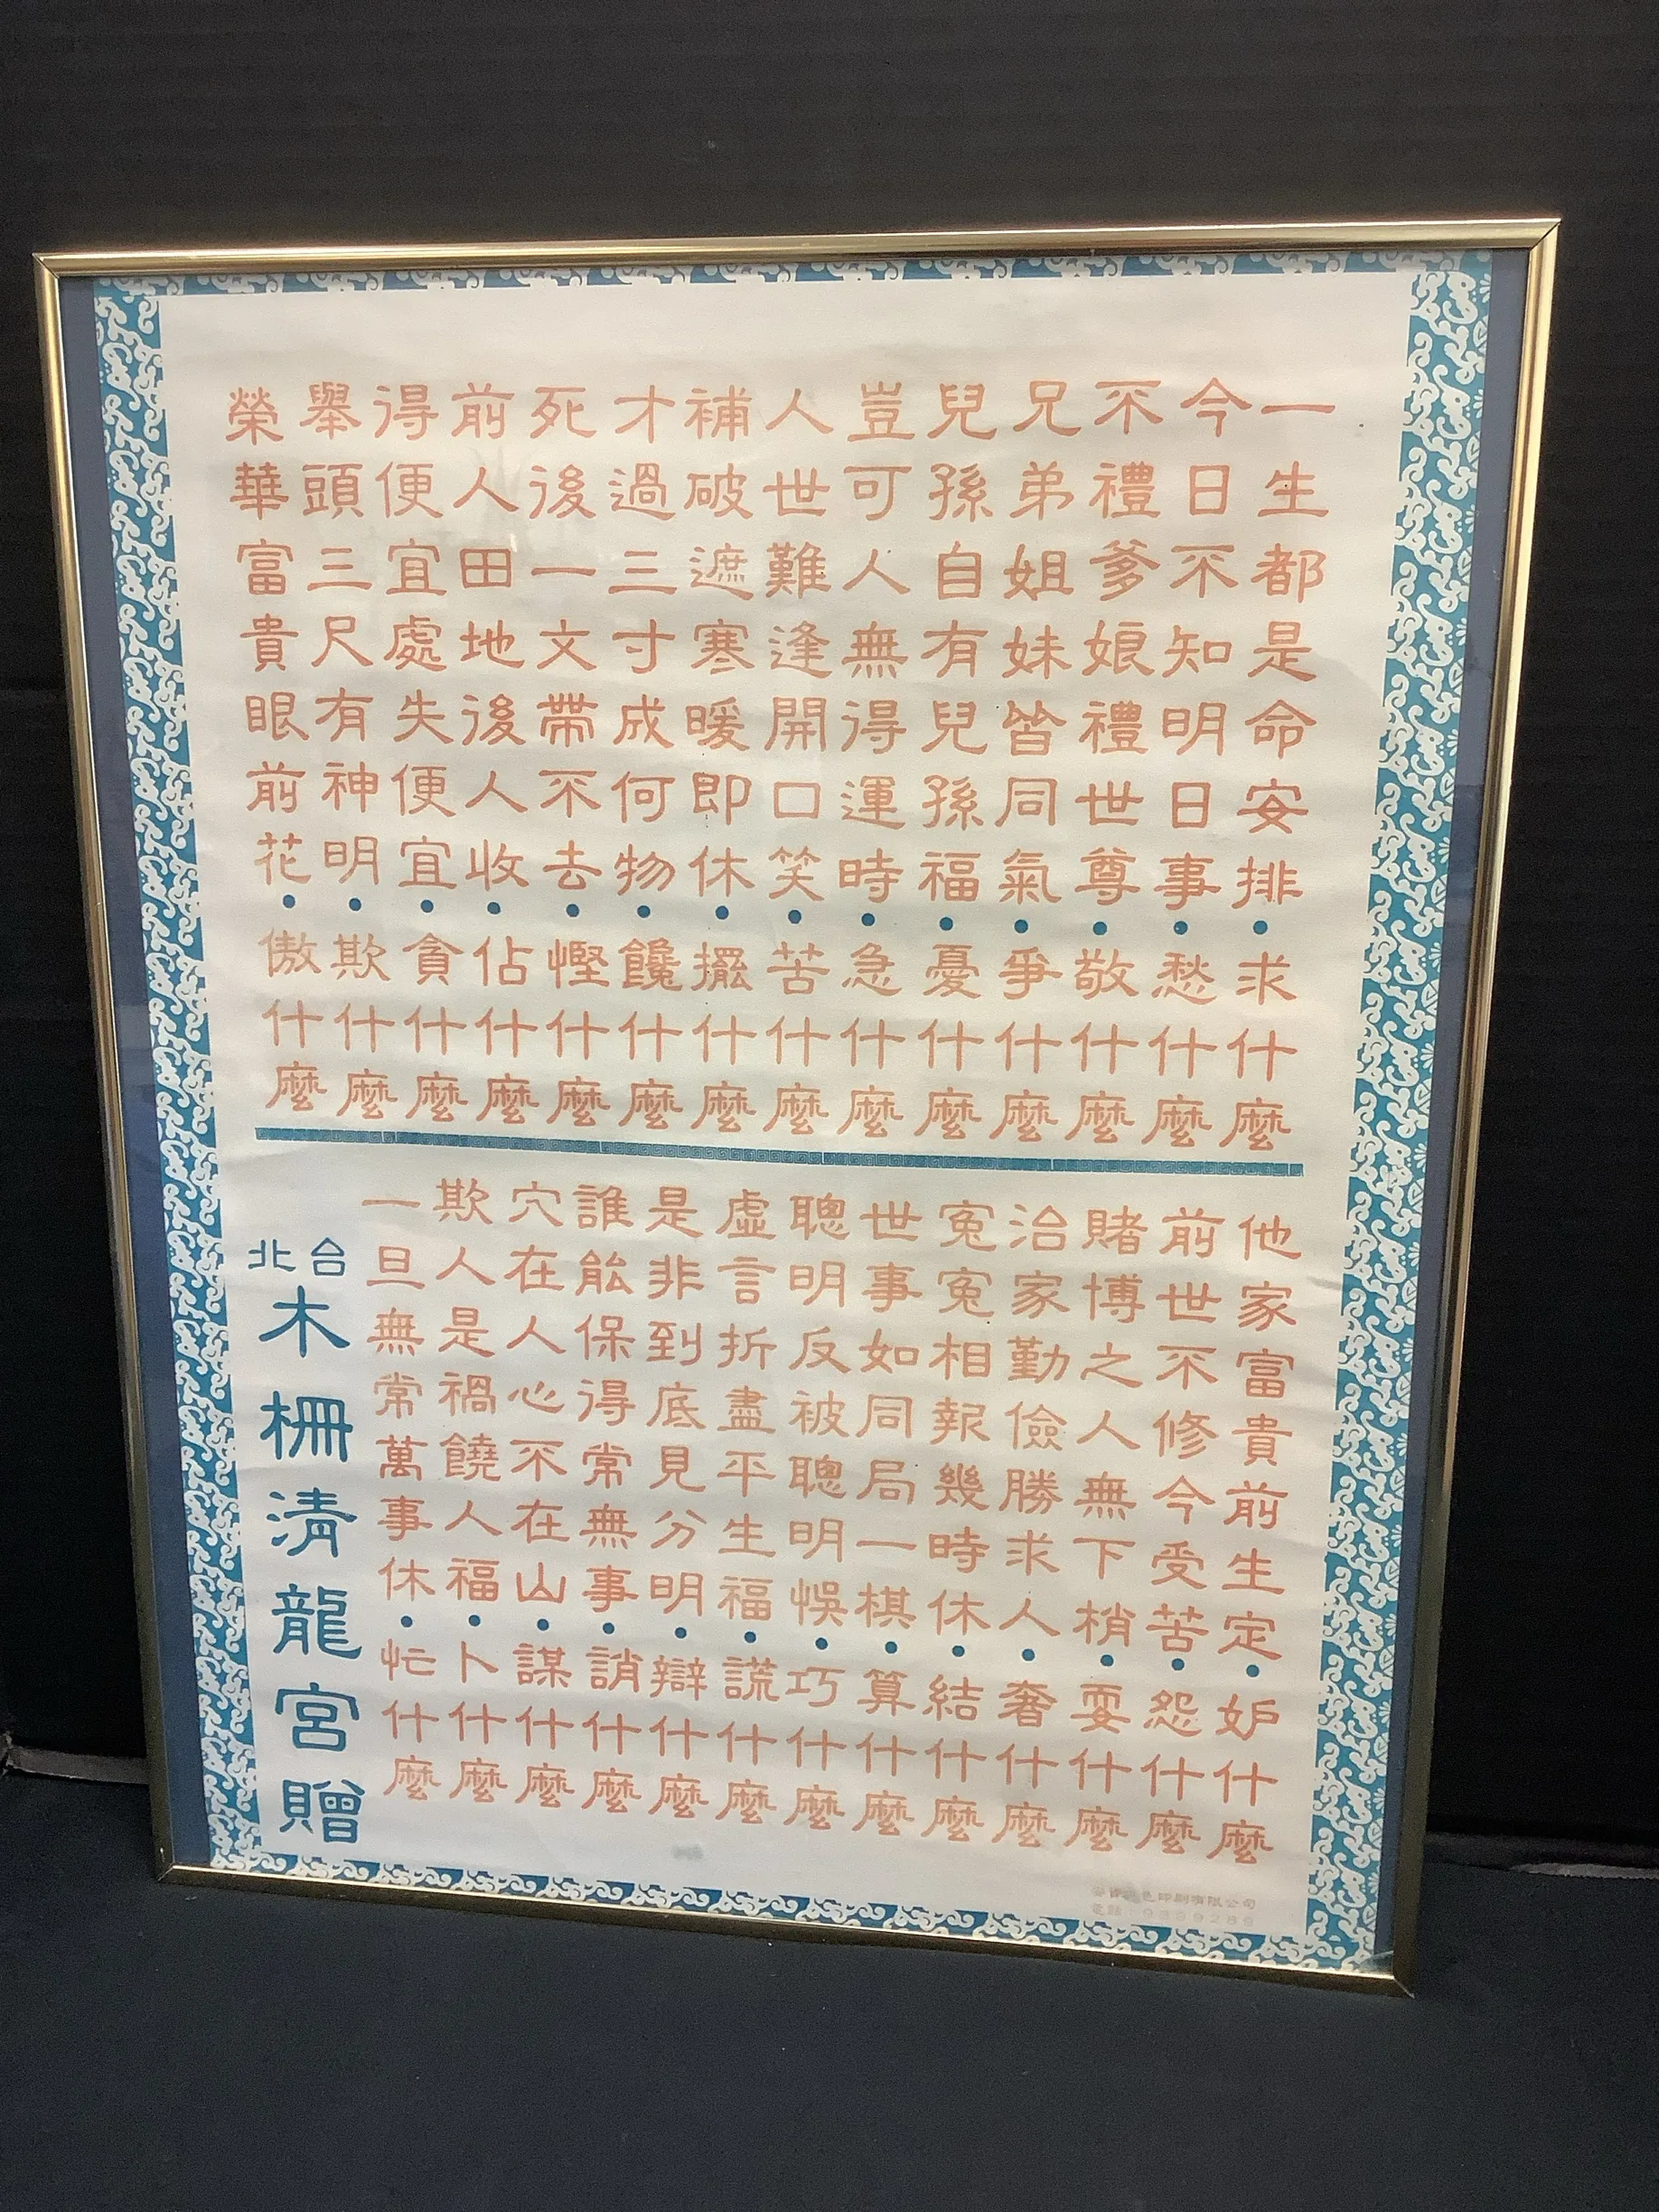 一生都是命安排•求什麼
今日不知明日事•愁什麼
不禮爹娘禮世尊•敬什麼
兄弟姐妹皆同氣•爭什麼
兒孫自有兒孫福•憂什麼
豈可人無得運時•急什麼
人世難逢開口笑•苦什麼
補破遮寒暖即休•擺什麼
才過三寸成何物•饞什麼
死後一文帶不去•慳什麼
前人田地後人收•佔什麼
得便宜處失便宜•貪什麼
舉頭三尺有神明•欺什麼
榮華富貴眼前花•傲什麼
他家富貴前生定•妒什麼
前世不修今受苦•怨什麼
賭博之人無下梢•耍什麼
治家勤儉勝求人•奢什麼
冤冤相報幾時休•結什麼
世事如同局一棋•算什麼
聰明反被聰明悞•巧什麼
虛言折盡平生福•謊什麼
是非到底見分明•辯什麼
誰能保得常無事•誚什麼
穴在人心不在山•謀什麼
欺人是禍饒人福•卜什麼
一旦無常萬事休•忙什麼
台北
木柵清龍宮贈
印刷有限公司